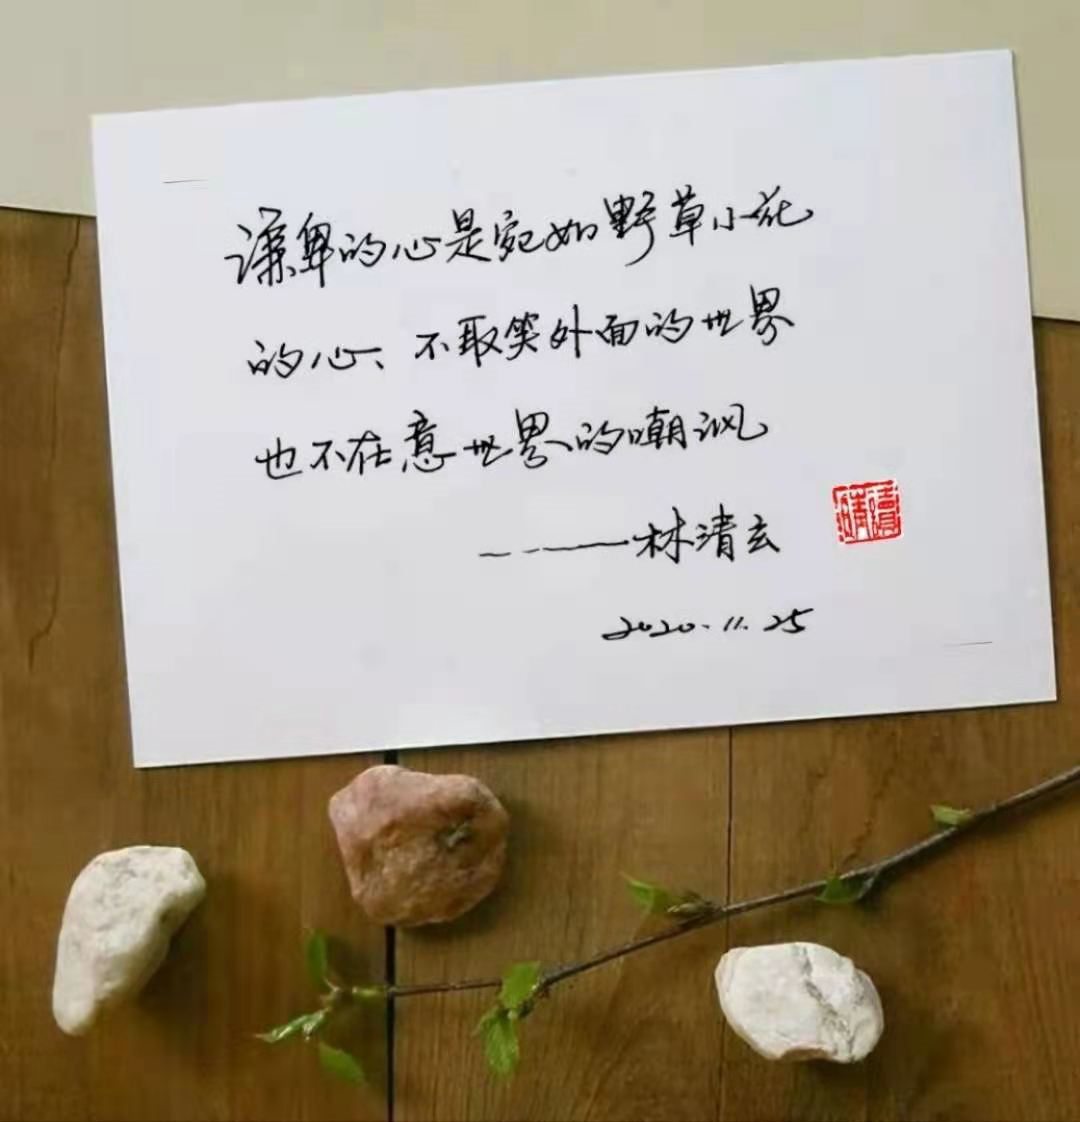 谦卑的心是宛如野草小花
的心、不取笑外面的世界
也不在意世界的嘲讽
————林清玄
2020.11.25